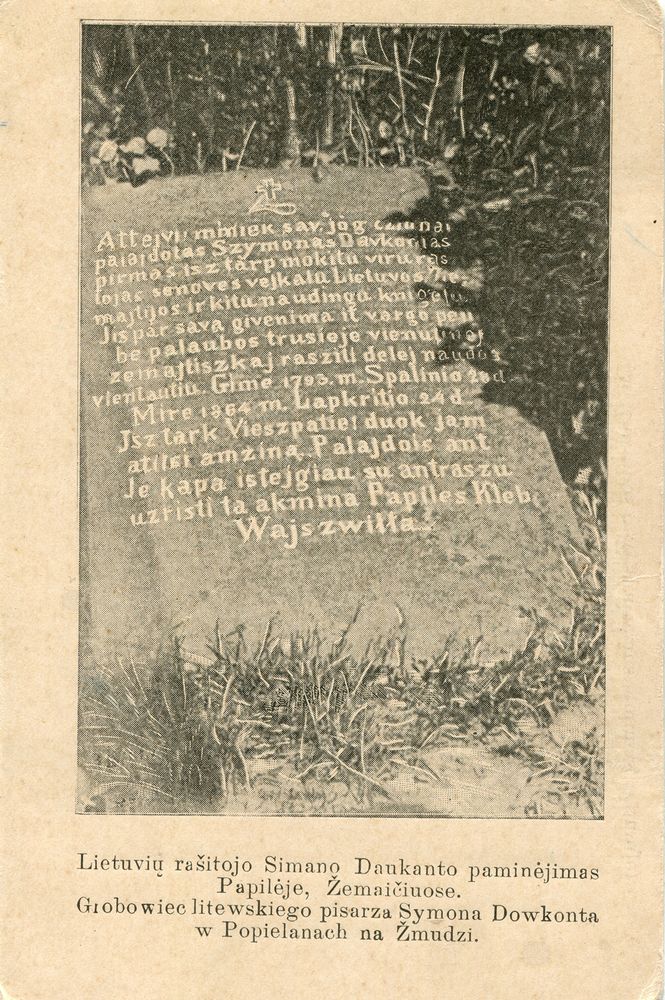 Attejvi! mìniek sav, jog cziunai
palajdotas Szymonas Davkontas
pirmas isz tarp mokitu viru ras
tojas senoves vejkalu Lietuvos Že
majtijos ir kitu naudingu kningelu.
Jis par sava givenima it vargo peli
be palaubos trusieje vienutinej
zemajtiszkaj raszidi delej naudos
vientautiu. Gime 1793. m. Spalinio 28d
Mire 1864 m. Lapkritio 24 d
Jsz tark Vieszpatie! duok jam
atilsi amžina.. Palajdois ant
Je kapa istejgiau su antraszu
užristi ta akmina Papiles Kleb.
Wajszwiłła..
Lietuvių rašitojo Simano Daukanto paminėjimas
Papilėje, Žemaičiuose.
Grobowiec litewskiego pisarza Symona Dowkonta
w Popielanach na Žmudzi.